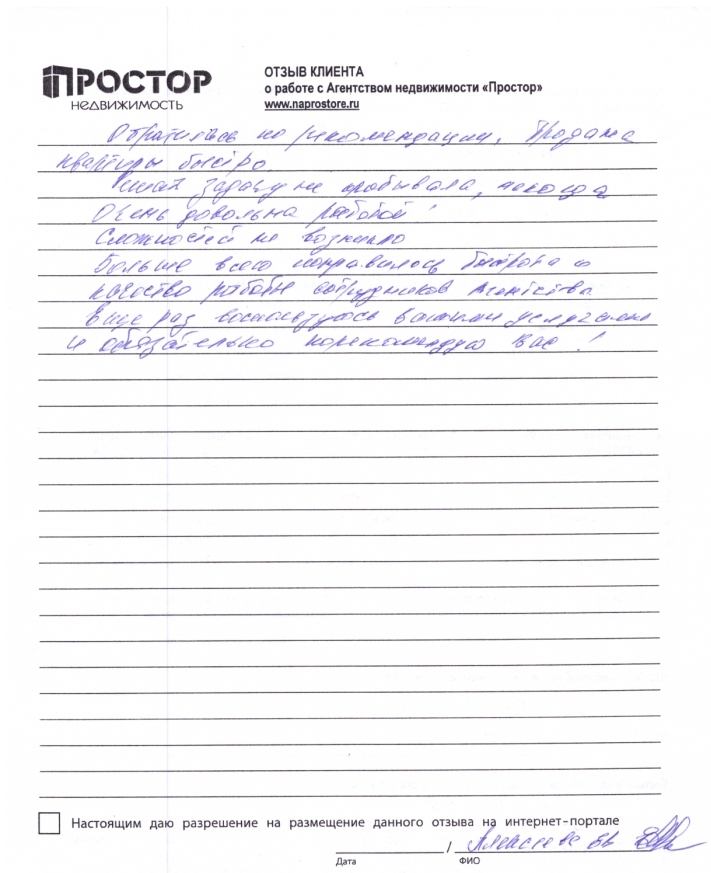 ПРОСТОР
НЕДВИЖИМОСТЬ
ОТЗЫВ КЛИЕНТА
о работе с Агентством недвижимости «Простор»
www.naprostore.ru
Обратилась по рекомендации. Продажа
квартиры быстро.
Решать задачу не пробывала, некогда
Очень довольна работой!
Сложностей не возникло
Больше всего понравилось быстрота и
качество работы сотрудников Агентства
Еще раз воспользуюсь вашими услугами
и обязательно порекомендую Вас!
Настоящим даю разрешение на размещение данного отзыва на интернет-портале
/ Алексеева
Дата ФИО